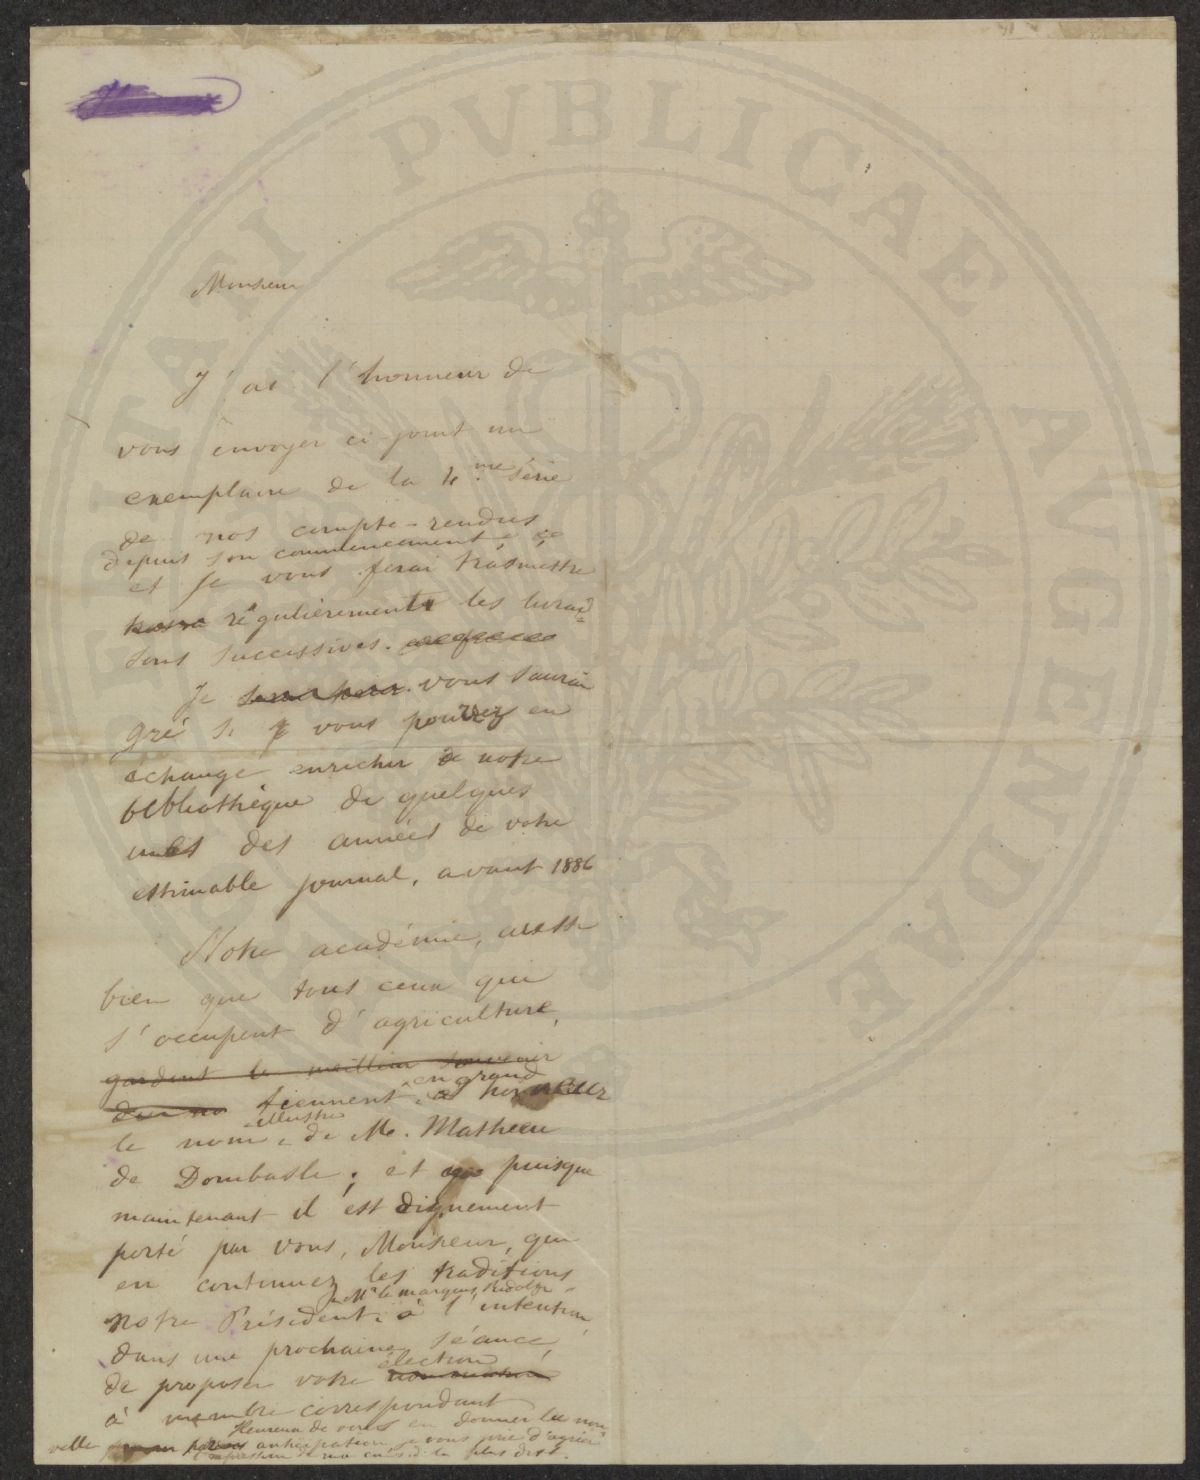 PROSPERITATI PVBLICAE AVGENDAE
Monsieur
J'ai l'honneur de
vous envoyer ci-joint un
exemplaire de la 4.me série
de nos compte-rendus
depuis son commencement,
et je vous ferai trasmettre
régulièrement les livrai=
sons successives.
Je vous saurai
gré si vous pouvez en
échange enrichir notre
bibliothèque de quelques
unes des années de votre
estimable journal, avant 1886
Notre académie, aussi
bien que tous ceux qui
s'occupent d'agriculture,
gardent le meilleur souvenir
tiennent en grand honneur
le nom illustre de M. Mathieu
de Dombasle; et puisque
maintenant il est dignement
porté par vous, Monsieur, qui
en continuez les traditions
notre Président, Mr le marquis Ridolfi à l'intention,
dans une prochaine séance,
de proposer votre élection
à membre correspondant
Heureux de vous en donner la nou
velle par anticipation, je vous prie d'agréer
l'expression de ma cons. la plus dist.